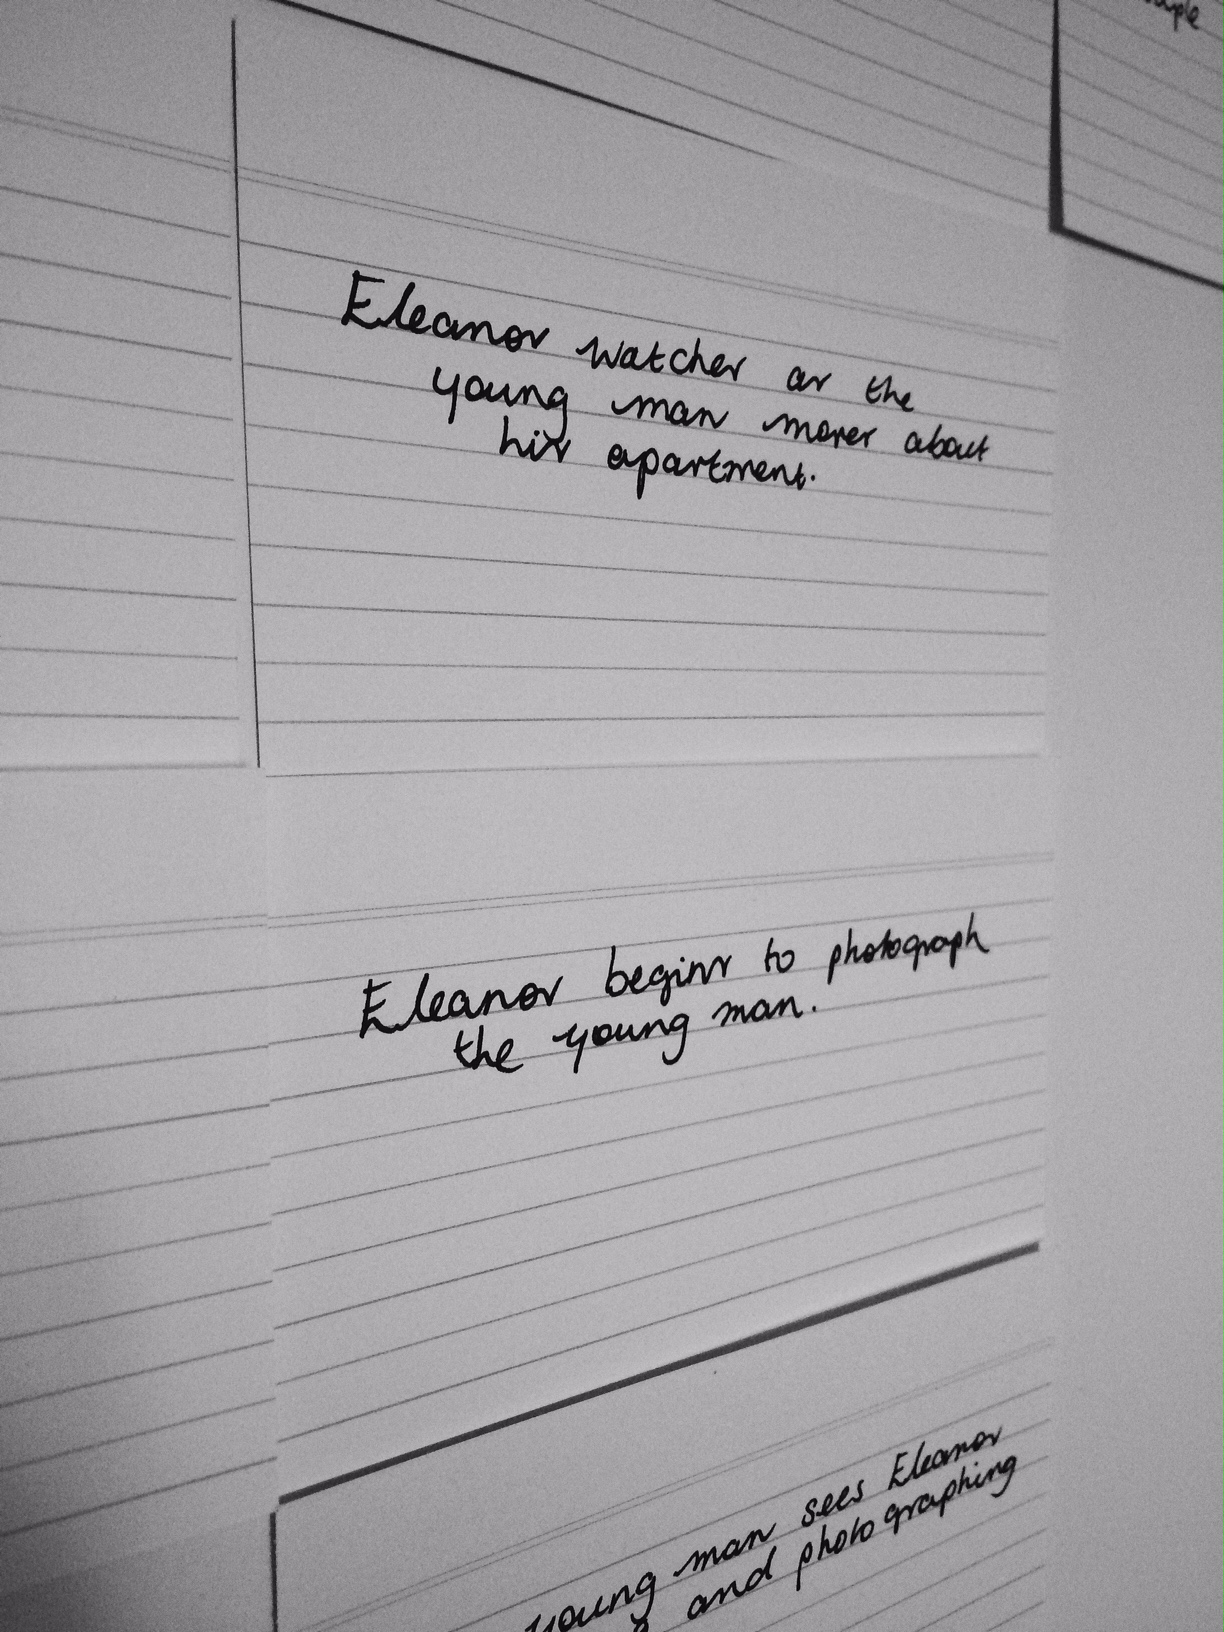 Eleanor watches as the
young man moves about
his apartment.
Eleanor begins to photograph
the young man.
young man sees Eleanor
and photographing